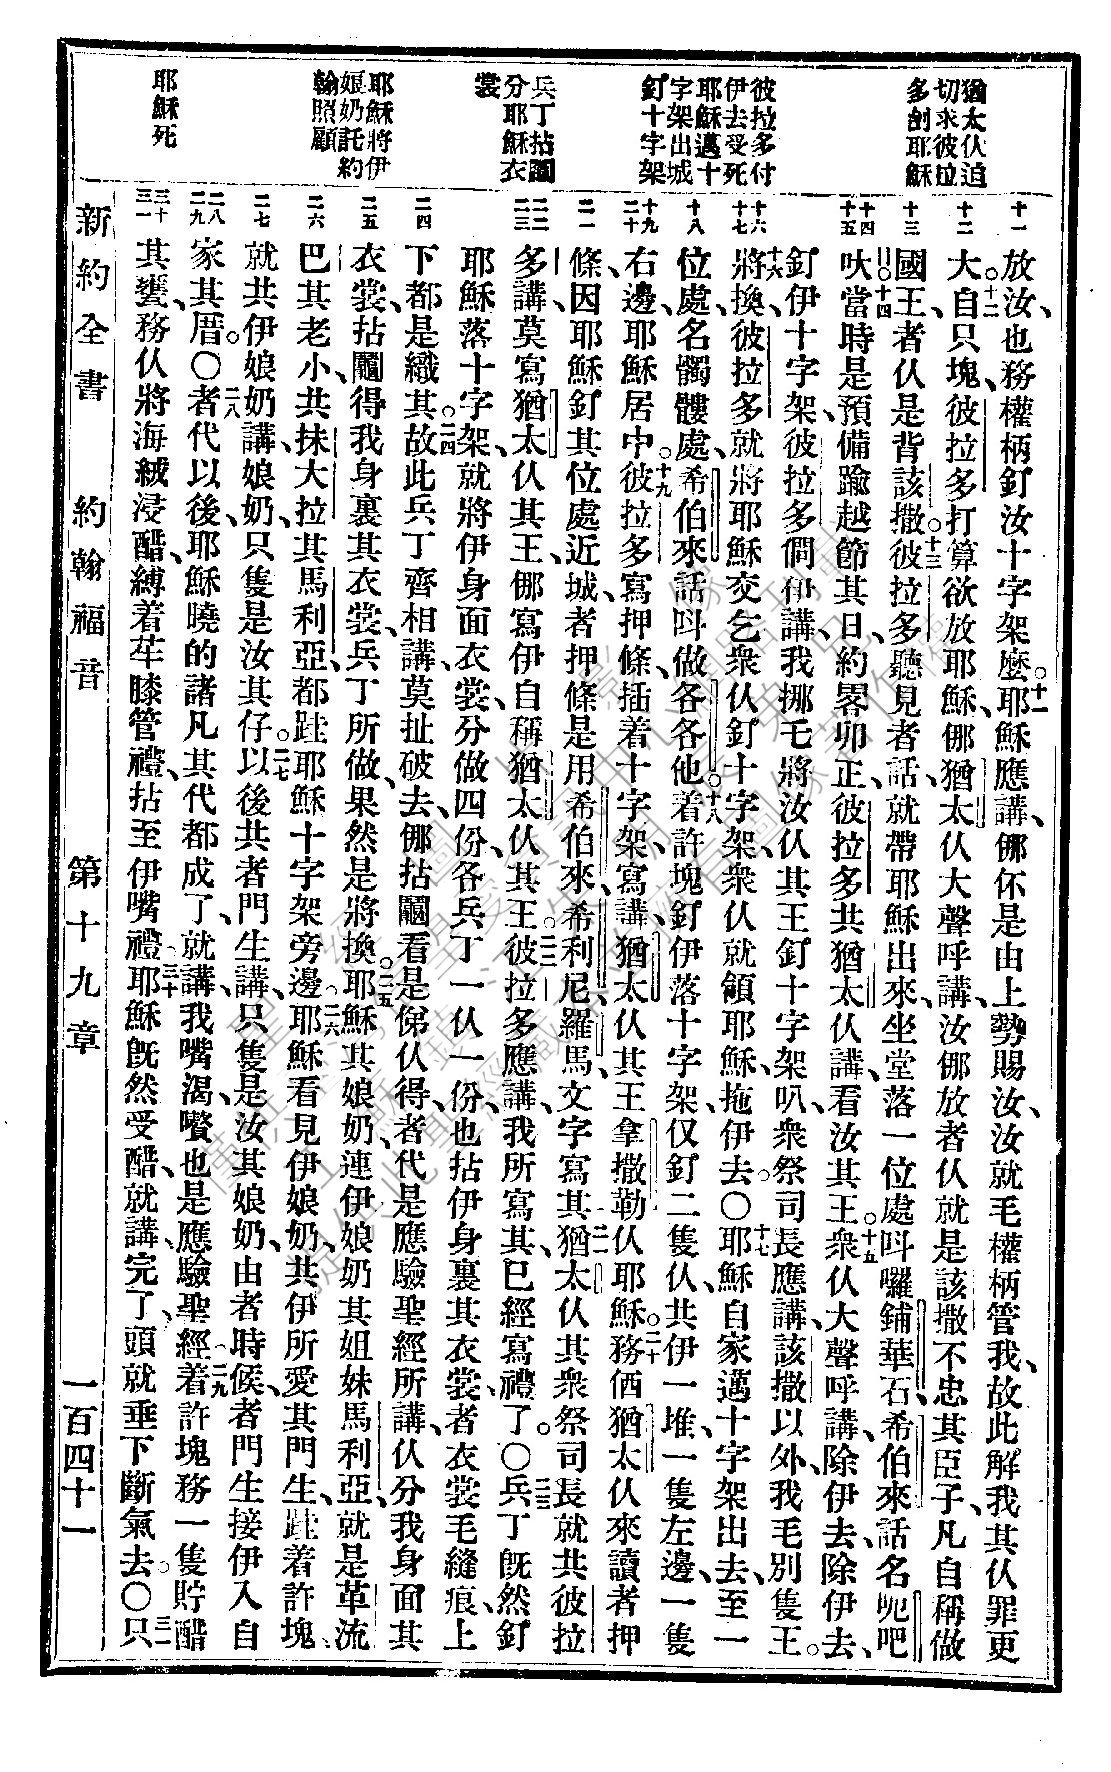 猶太仫迫
切求彼拉
多創耶穌
彼拉多付
伊去受死
耶穌邁十
字架出城
釘十字架
兵丁拈鬮
分耶穌衣
裳
耶穌將伊
娘奶託約
翰照顧
耶穌死
十一
十二
十三
十四
十五
十六
十七
十八
十九
二十
二一
二二
二三
二四
二五
二六
二七
二八
二九
三十
三一
放汝、也務權柄釘汝十字架麽。十一耶穌應講、㑚伓是由上勢賜汝、汝就毛權柄管我、故此解我其仫罪更
大。十二自只塊、彼拉多打算欲放耶穌、㑚猶太仫大聲呼講、汝㑚放者仫、就是該撒不忠其臣子、凡自稱做
國王者仫、是背該撒。十三彼拉多聽見者話、就帶耶穌出來、坐堂落一位處、呌囉鋪華石、希伯來話名呃吧
吠。十四當時是預備踰越節其日、約畧卯正、彼拉多共猶太仫講、看汝其王。十五衆仫大聲呼講、除伊去、除伊去、
釘伊十字架、彼拉多僴伊講、我挪乇將汝仫其王釘十字架叭、衆祭司長應講、該撒以外、我毛別隻王。
十六將換彼拉多就將耶穌交乞衆仫釘十字架、衆仫就領耶穌、拖伊去。〇十七耶穌自家邁十字架出去、至一
位處、名髑髏處、希伯來話呌做各各他。十八着許塊釘伊落十字架、仅釘二隻仫、共伊一堆、一隻左邊、一隻
右邊、耶穌居中。十九彼拉多寫押條、插着十字架、寫講、猶太仫其王拿撒勒仫耶穌。二十務仴猶太仫來讀者押
條、因耶穌釘其位處近城、者押條是用希伯來、希利尼、羅馬、文字寫其。二一猶太仫其衆祭司長、就共彼拉
多講、莫寫猶太仫其王、㑚寫伊自稱猶太仫其王。二二彼拉多應講、我所寫其、已經寫禮了。〇二三兵丁旣然釘
耶穌落十字架、就將伊身面衣裳、分做四份、各兵丁一仫一份、也拈伊身裏其衣裳、者衣裳毛縫痕、上
下都是織其。二四故此兵丁齊相講、莫扯破去、㑚拈鬮看是俤仫得、者代是應驗聖經所講、仫分我身面其
衣裳、拈鬮得我身裏其衣裳、兵丁所做、果然是將換。二五耶穌其娘奶、連伊娘奶其姐妹馬利亞、就是革流
巴其老小、共抹大拉其馬利亞、都跬耶穌十字架旁邊、二六耶穌看見伊娘奶、共伊所愛其門生、跬着許塊、
就共伊娘奶講、娘奶、只隻是汝其仔。二七以後共者門生講、只隻是汝其娘奶、由者時候、者門生接伊入自
家其厝。〇二八者代以後、耶穌曉的諸凡其代都成了、就講、我嘴渴、嚽也是應驗聖經、二九着許塊務一隻貯醋
其甕、務仫將海絨浸醋、縛着苼膝管禮、拈至伊嘴禮、三十耶穌旣然受醋、就講、完了、頭就垂下斷氣去。〇三一只
新約全書　約翰福音　第十九章　一百四十一